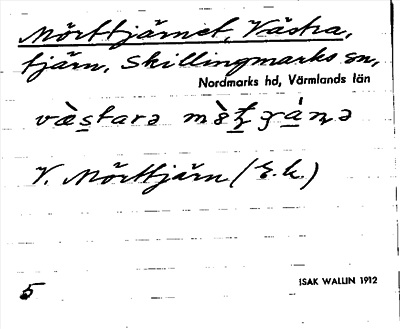 Mörttjärnet, Västra,
tjärn, Skillingmarks sn,
Nordmarks hd, Värmlands län
V. Mörttjärn (E.k.)
5
ISAK WALLIN 1912